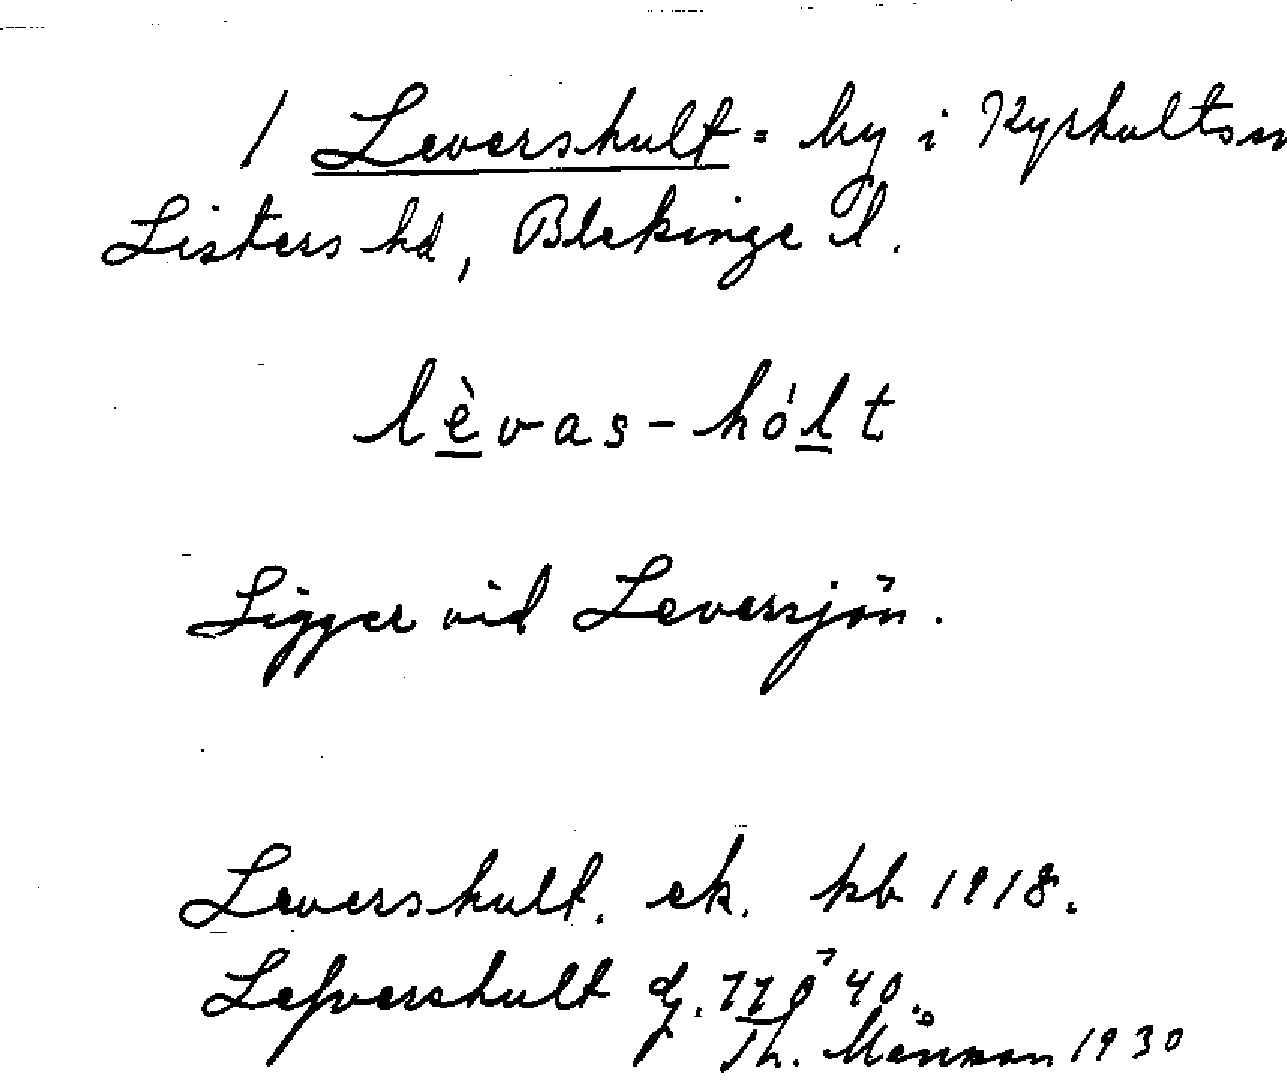 / Levershult = by i Kyrkultssn
Listers hd, Blekinge l.
lèvas-hó'lt
Ligger vid Leversjön.
Levershult. ek. kb 1918.
Lefvershult gj. 77 Ö 40.
Th. Månsson 1930